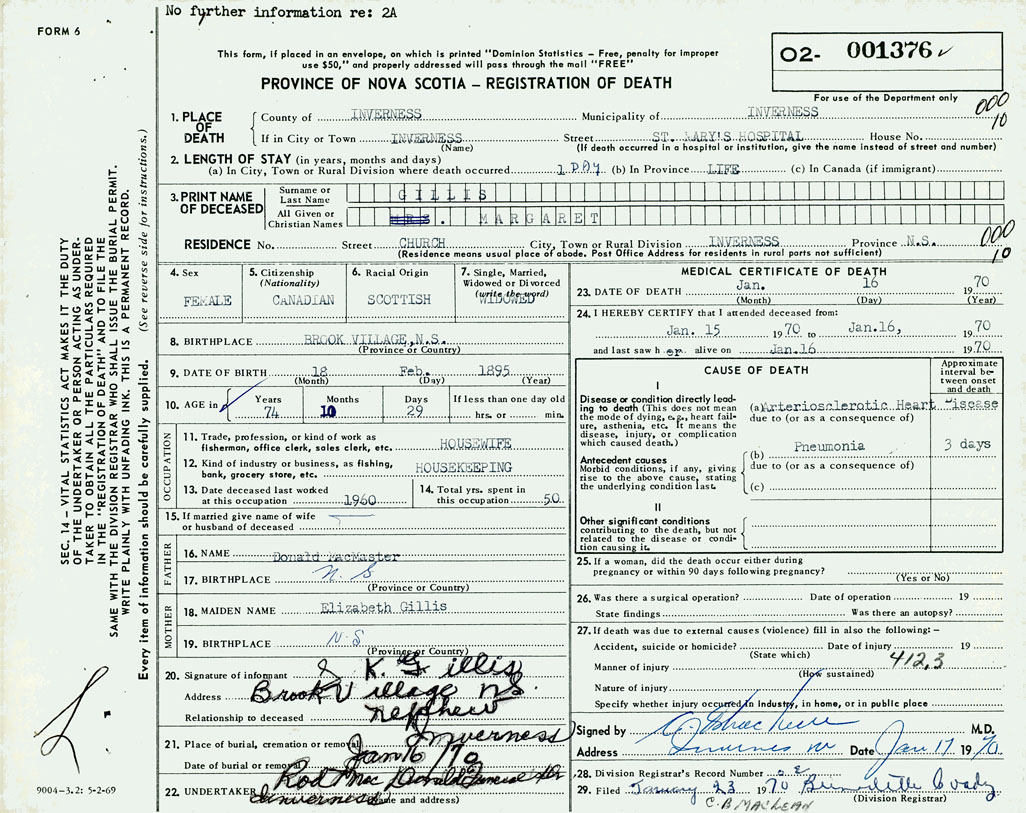 No further information re: 2A
FORM 6
This form, if placed in an envelope, on which is printed "Dominion Statistics - Free, penalty for improper
use $50," and properly addressed will pass through the mail "FREE"
PROVINCE OF NOVA SCOTIA - REGISTRATION OF DEATH
02- 001376
For use of the Department only
000
10
1. PLACE OF DEATH
County of INVERNESS Municipality of INVERNESS
If in City or Town INVERNESS Street ST. MARY'S HOSPITAL House No.
(Name) (If death occurred in a hospital or institution, give the name instead of street and number)
2. LENGTH OF STAY (in years, months and days)
(a) In City, Town or Rural Division where death occurred 1 DAY (b) In Province LIFE (c) In Canada (if immigrant)
3. PRINT NAME OF DECEASED
Surname or Last Name GILLIS
All Given or Christian Names MRS. MARGARET
RESIDENCE No. Street CHURCH City, Town or Rural Division INVERNESS Province N.S.
(Residence means usual place of abode. Post Office Address for residents in rural parts not sufficient)
000
10
4. Sex FEMALE
5. Citizenship (Nationality) CANADIAN
6. Racial Origin SCOTTISH
7. Single, Married, Widowed or Divorced (write the word) WIDOWED
8. BIRTHPLACE BROOK VILLAGE, N.S.
(Province or Country)
9. DATE OF BIRTH 18 Feb. 1895
(Month) (Day) (Year)
10. AGE in Years 74 Months 10 Days 29 If less than one day old hrs. or min.
OCCUPATION
11. Trade, profession, or kind of work as fisherman, office clerk, sales clerk, etc. HOUSEWIFE
12. Kind of industry or business, as fishing, bank, grocery store, etc. HOUSEKEEPING
13. Date deceased last worked at this occupation 1960
14. Total yrs. spent in this occupation 50
15. If married give name of wife or husband of deceased
FATHER
16. NAME Donald MacMaster
17. BIRTHPLACE N.S
(Province or Country)
MOTHER
18. MAIDEN NAME Elizabeth Gillis
19. BIRTHPLACE N.S
(Province or Country)
20. Signature of informant K. Gillis
Address Brook Village NS.
Relationship to deceased Nephew
21. Place of burial, cremation or removal Inverness
Date of burial or removal Jan 16/70
22. UNDERTAKER Rod MacDonald
Inverness
(Name and address)
MEDICAL CERTIFICATE OF DEATH
23. DATE OF DEATH Jan. 16 1970
(Month) (Day) (Year)
24. I HEREBY CERTIFY that I attended deceased from:
Jan. 15 1970 to Jan.16, 1970
and last saw h er alive on Jan.16 1970
CAUSE OF DEATH
Approximate interval between onset and death
I
Disease or condition directly leading to death (This does not mean the mode of dying, e.g., heart failure, asthenia, etc. It means the disease, injury, or complication which caused death.)
(a) Arteriosclerotic Heart Disease
due to (or as a consequence of)
(b) Pneumonia 3 days
due to (or as a consequence of)
(c)
Antecedent causes
Morbid conditions, if any, giving rise to the above cause, stating the underlying condition last.
II
Other significant conditions contributing to the death, but not related to the disease or condition causing it.
25. If a woman, did the death occur either during
pregnancy or within 90 days following pregnancy?
(Yes or No)
26. Was there a surgical operation? Date of operation 19
State findings Was there an autopsy?
27. If death was due to external causes (violence) fill in also the following:-
Accident, suicide or homicide? Date of injury 19
(State which)
Manner of injury 412.3
(How sustained)
Nature of injury
Specify whether injury occurred in industry, in home, or in public place
Signed by M.D.
Address Date Jan 17 1970
28. Division Registrar's Record Number
29. Filed January 23 1970 Bernadette
(Division Registrar)
C.B MACLEAN
SEC. 14 - VITAL STATISTICS ACT MAKES IT THE DUTY
OF THE UNDERTAKER OR PERSON ACTING AS UNDER-
TAKER TO OBTAIN ALL THE PARTICULARS REQUIRED
IN THE "REGISTRATION OF DEATH" AND TO FILE THE
SAME WITH THE DIVISION REGISTRAR WHO SHALL ISSUE THE BURIAL PERMIT.
WRITE PLAINLY WITH UNFADING INK. THIS IS A PERMANENT RECORD.
Every item of information should be carefully supplied. (See reverse side for instructions.)
9004-3.2: 5-2-69